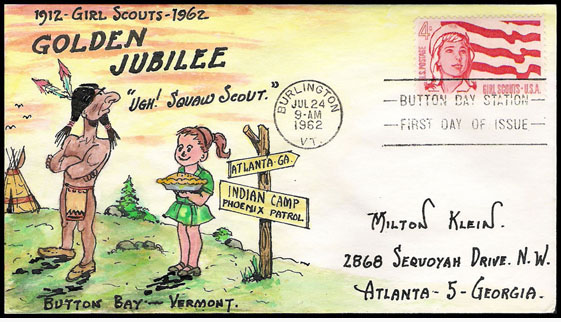 1912-GIRL SCOUTS-1962
GOLDEN
JUBILEE
"UGH! SQUAW SCOUT."
ATLANTA-GA.
INDIAN CAMP
PHOENIX PATROL
BUTTON BAY — VERMONT.
BURLINGTON
JUL 24
9-AM
1962
VT.
4¢
U.S. POSTAGE
GIRL SCOUTS·U.S.A.
BUTTON BAY STATION
FIRST DAY OF ISSUE
MILTON KLEIN.
2868 SEQUOYAH DRIVE. N.W.
ATLANTA-5-GEORGIA.